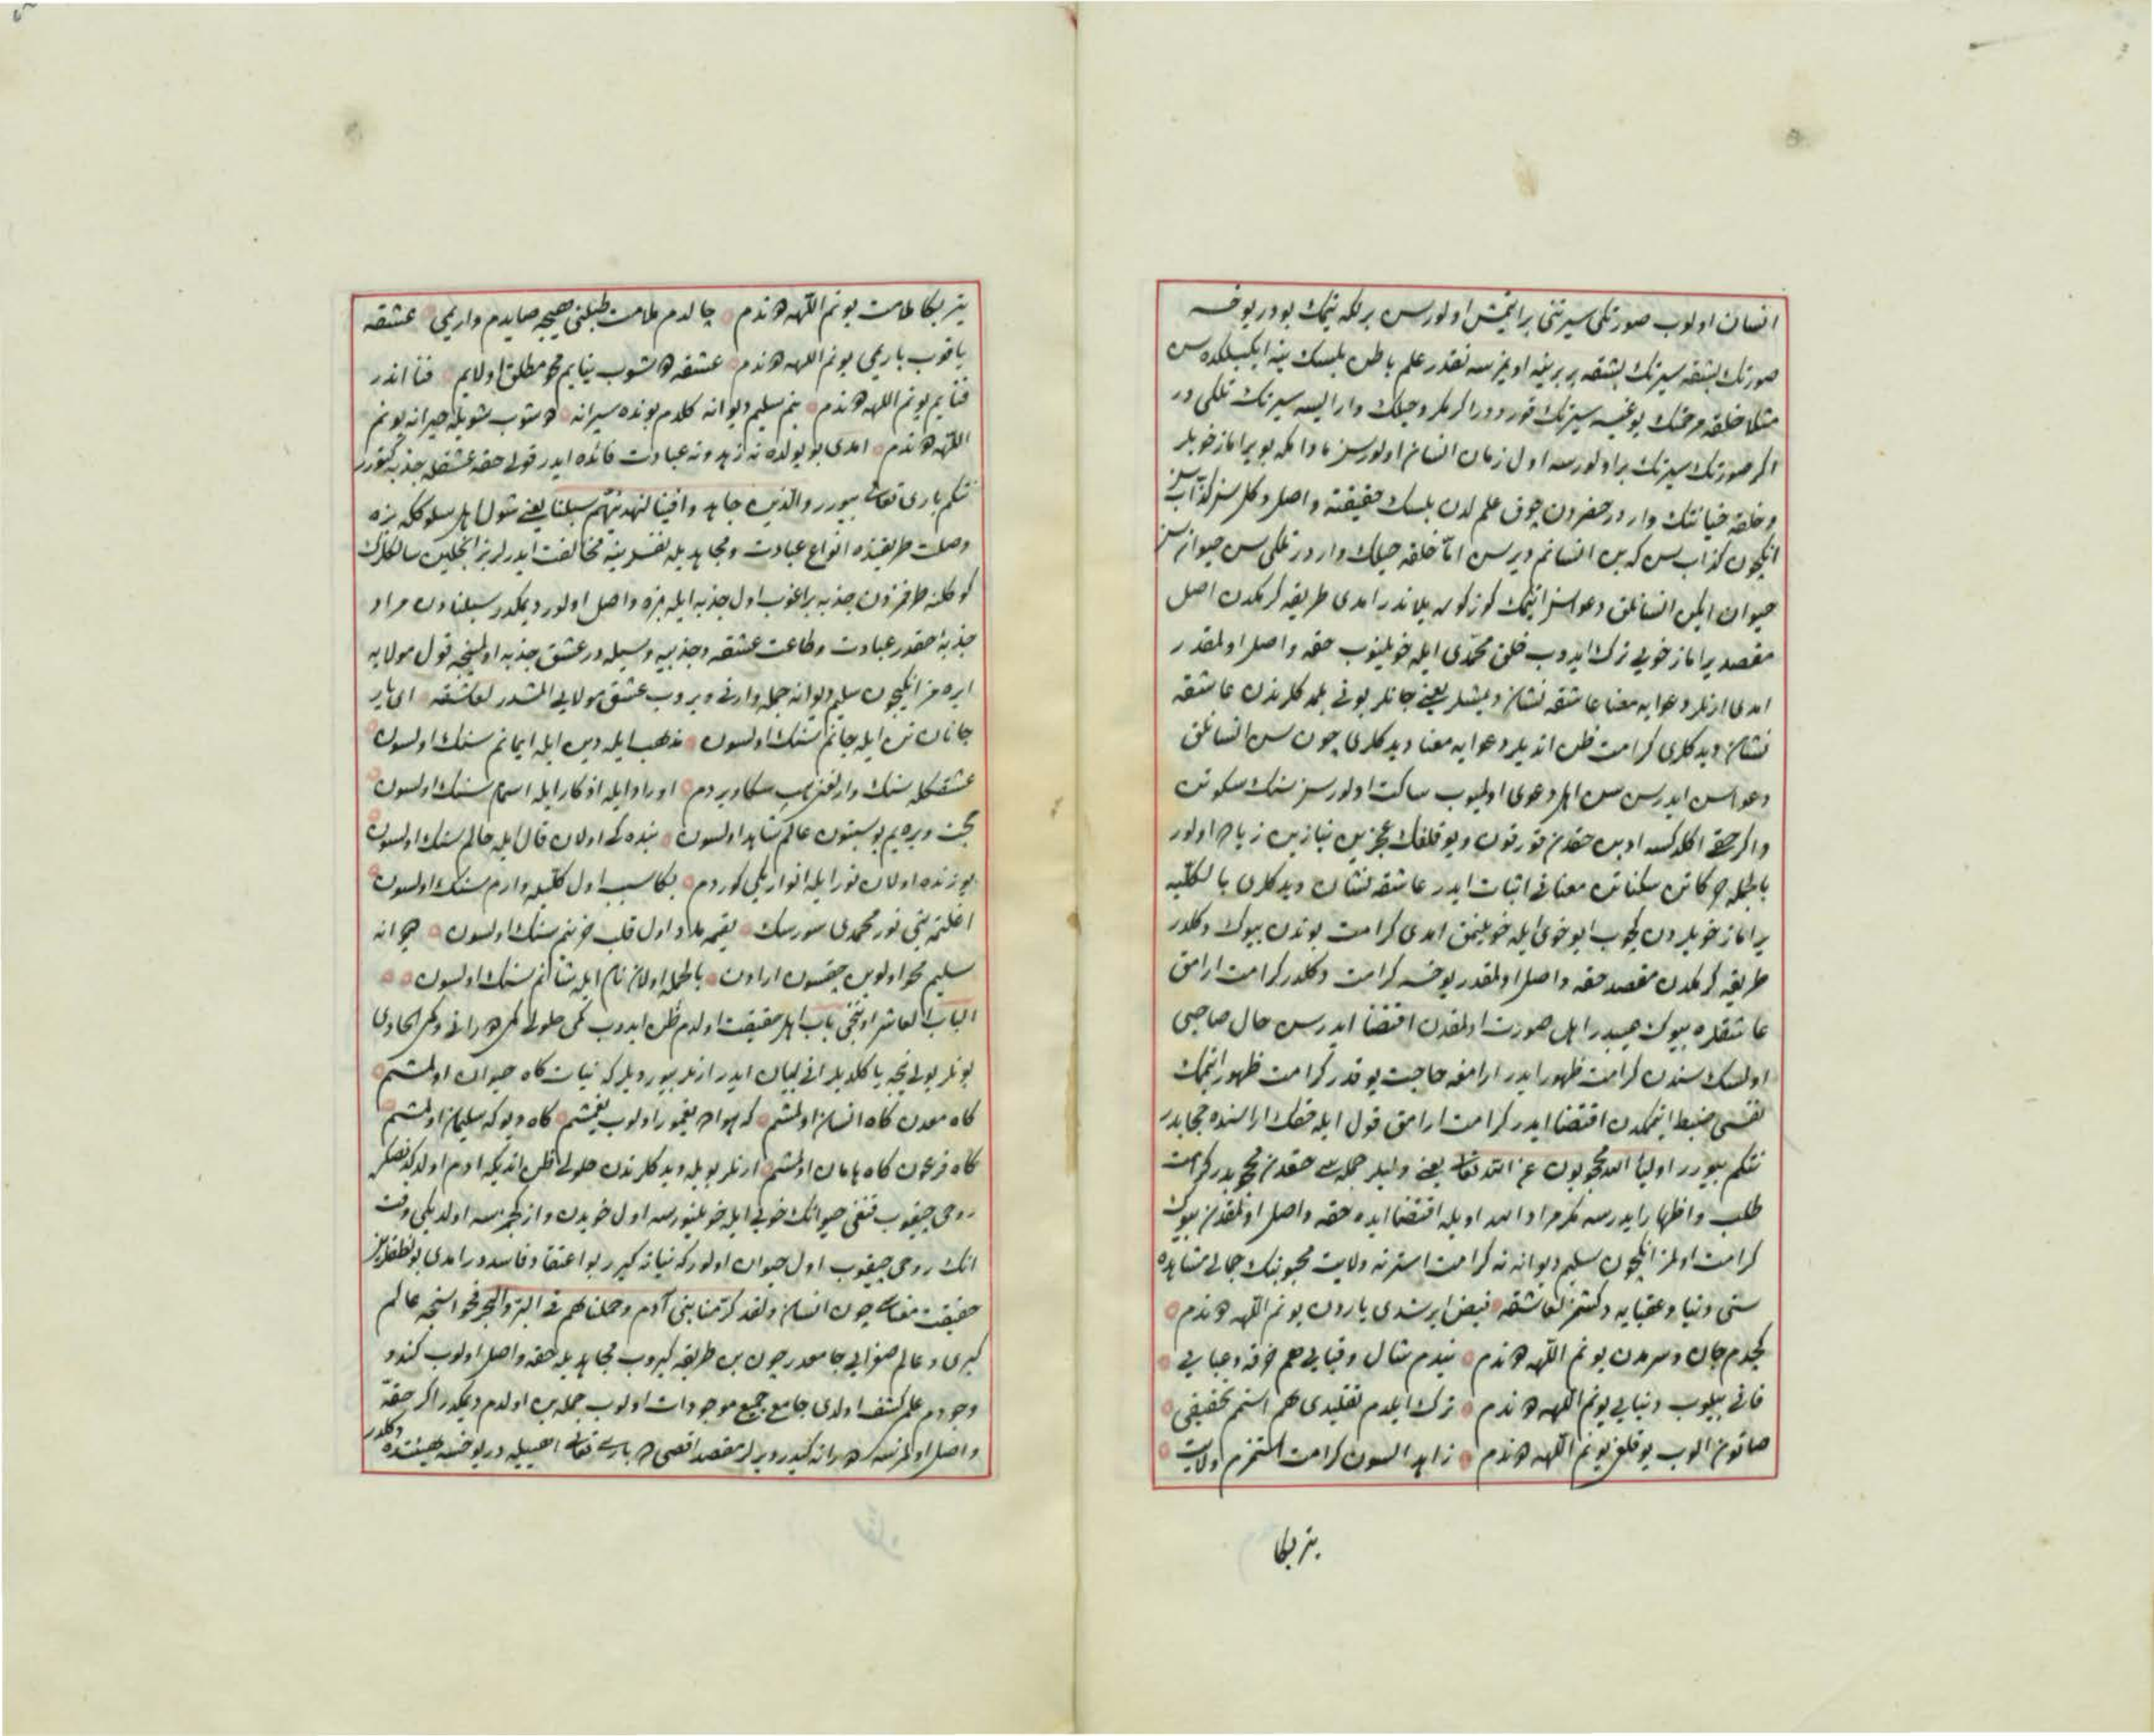 انسان اولوب صورتكی سیرتنی بر ایتمش اولورسن بركه ایتمك بودر یوخسه
صورتك بشقه سیرتك بشقه بر برینه اویمزسه نقدر علم باطن بلسك ینه ایكیلكده سن
مثلا خلقه مرحمتك یوغیسه سیرتك قورددر اكر مكر و حیلك وار ایسه سیرتك تلكی در
اكر صورتك سیرتك بر اولورسه اول زمان انسان اولورسن مادامكه یوبراماز خویلر
و خلقه خیانتك وار در حضردن چوق علم لدن بلسك حقیقته واصل دكلسن كذابسن
انكچون كذابسن كه بن انسانم دیرسن اما خلقه حیلك وار در تلكی سن حیوانسن
حیوان ایكن انسانلق دعواسن ایتمك كوز كوره یلاندر امدی طریقه كرمكدن اصل
مقصد یراماز خویی ترك ایدوب خلق محمدی ایله خویلنوب حقه واصل اولمقدر
امدی ارنلر دعوایه معنا عاشقه نشان دیمشلر یعنی جاهلر بونی بلمدكلرندن عاشقه
نشان دیدكلری كرامت ظن اتدیلر دعوایه معنا دیدكلری چون سن انسانلق
دعواسن ایدرسن سن اهل دعوی اولمیوب ساكت اولورسن سنك سكوتك
و اكر حقی اكلدكسه ادبن حقدن قورقون و یوقلغك عجزین نیازین زیاده اولور
بالجمله حركاتن سكناتن معنایی اثبات ایدر عاشقه نشان دیدكلری بالكلیه
یراماز خویلردن كچوب ایو خوی ایله خویلنمق امدی كرامت بوندن بیوك دكلدر
طریقه كرمكدن مقصد حقه واصل اولمقدر یوخسه كرامت دكلدر كرامت ارامق
عاشقلره بیوك عیبدر اهل صورت اولمقدن اقتضا ایدر سن حال صاحبی
اولسك سندن كرامت ظهور ایدر ارامغه حاجت یوقدر كرامت ظهور ایتمك
نفسی ضبط ایتمكدن اقتضا ایدر كرامت ارامق قول ایله حقك اراسنده حجابدر
نتكم بیورر اولیاء الله محجوبون عن الله تعالی یعنی ولیلر جمله سی حقدن محجوبدر كرامت
طلب و اظهار ایدرسه مكر مراد الله اویله اقتضا ایده حقه واصل اولمقدن بیوك
كرامت اولمز انكچون سلیم دیوانه نه كرامت استر نه ولایت محبوبنك جمالی مشاهده
سنی دنیا و عقبایه دكشمز لعاشقه فیض ایرشدی یاردن یونم اللهه دوندم
كچدم جان و سردن یونم اللهه دوندم نیدم شال و قبایی هم خرقه و عبایی
فانی بیلوب دنیایی یونم اللهه دوندم ترك ایلدم تقلیدی هم استم تحقیقی
صاتون الوب یوقلغی یونم اللهه دوندم زاهد السون كرامت استمزم ولایت
یتر بكا
یتر بكا ملامت یونم اللهه دوندم چالدم ملامت طبلنی هیچه صایدم واریمی عشقه
یاقوب باریمی یونم اللهه دوندم عشقه دوشوب ینایم محو مطلق اولایم فنا اندر
فنایم یونم اللهه دوندم بنم سلیم دیوانه كلدم بونده سیرانه دوشوب شویله حیرانه یونم
اللهه دوندم امدی بو یولده نه زهد و نه عبادت فائده ایدر قولی حقه عشقله جذبه كتورر
نتكم باری تعالی بیورر والذین جاهدوا فینا لنهدینهم سبلنا یعنی شول اهل سلوككه بزه
وصلت طریقنده انواع عبادت و مجاهدیله نفسلرینه مخالفت ایدرلر بز انجلین سالكلرك
كوكلنه طرفمزدن جذبه براغوب اول جذبه ایله بزه واصل اولور دیمكدر سبلنادن مراد
جذبهٔ حقدر عبادت و طاعت عشقه و جذبیه وسیله در عشق جذبه اولمینجه قول مولایه
ایره مز انكچون سلیم دیوانه جمله وارنی ویروب عشق مولایی المشدر لعاشقه ای یار
جانان تن ایله جانم سنك اولسون مذهب ایله دین ایله ایمانم سنك اولسون
عشقكله سنك وارلغم هپ سكا ویردم اوراد ایله اذكار ایله اسمام سنك اولسون
بحث ویرهیم بو سبتون عالم شاهد اولسون بنده كی اولان قال ایله حالم سنك اولسون
یوزنده اولان نور ایله انواریكی كوردم بكا سبب اول كلیه وارم سنك اولسون
اغلتمه بنی نور محمدی سورسك یقمه ملا اول قلب حزینم سنك اولسون دیوانه
سلیم محو اولوبن چقسون ارادن بالجمله اولان نام ایله شانم سنك اولسون
الباب العاشر اوننجی باب اهل حقیقت اولدم ظن ایدوب كمی حلولی كمی دهرانی و كمی الحادی
بونلر یولی نیجه یاكلدیلر انی بیان ایدر ارنلر بیوردیلر كه نیات كاه حیوان اولمشم
كاه معدن كاه انسان اولمشم كه هواده یغمور اولوب یغمشم كاه دیو كه سلیمان اولمشم
كاه فرعون كاه هامان اولمشم ارنلر بویله دیدكلرندن حلولی ظن اتدیكه ادم اولدكدنصكره
روحی چیقوب قنغی حیوانك خویی ایله خویلنورسه اول خویدن واز كچمزسه اولدیكی وقت
انك روحی چیقوب اول حیوان اولور كه نیاته كیرر بو اعتقاد فاسددر امدی بو نطقلریمز
حقیقت مقامی چون انسان ولقد كرمنا بنی آدم وحملناهم فی البر والبحر فحواسنجه عالم
كبری و عالم صغرایی جامعدر چون بن طریقه كیروب مجاهدیله حقه واصل اولوب كندو
وجودم علم كشف اولدی جامع جمیع موجودات اولوب جمله بن اولدم دیمكدر اكر حقه
واصل اولمزسه دورانه كیدر دیرلر مقصد اقصی ده باری تعالی احسیله در یوخسه جنتده دكلدر